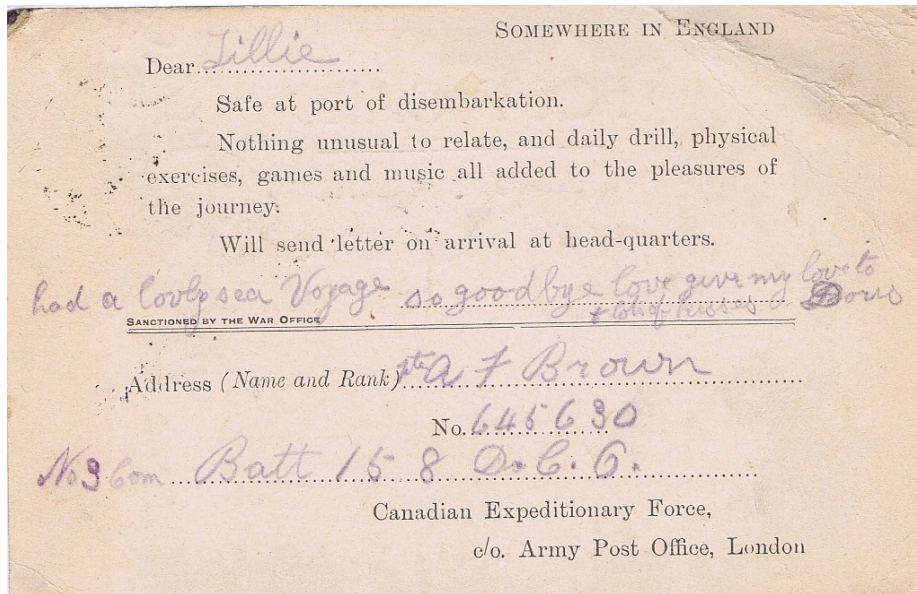 SOMEWHERE IN ENGLAND
Dear Tillie
Safe at port of disembarkation.
Nothing unusual to relate, and daily drill, physical
exercises, games and music all added to the pleasures of
the journey.
Will send letter on arrival at head-quarters.
had a lovly sea Voyage so goodbye love give my love to
+ lots of kisses Doris
SANCTIONED BY THE WAR OFFICE
Address (Name and Rank) Pte A F Brown
No. 645630
No 3 Com Batt 158 D.C.O.
Canadian Expeditionary Force,
c/o. Army Post Office, London